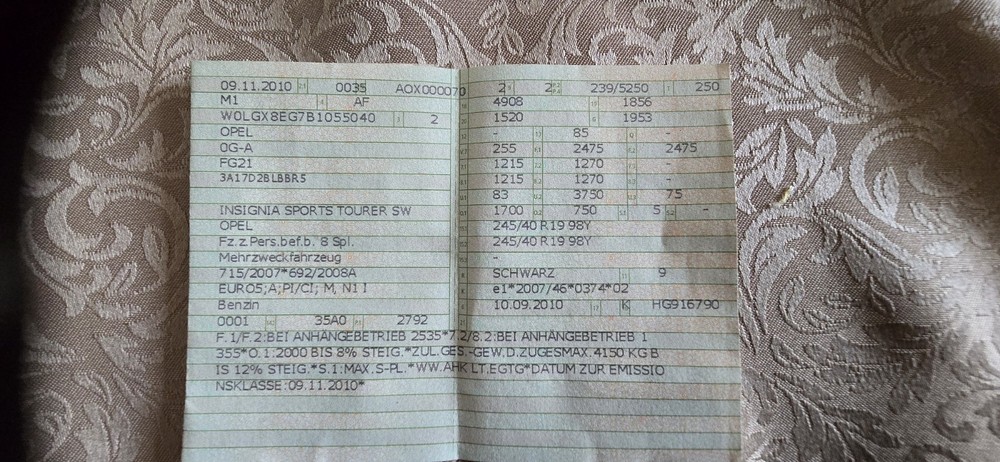 09.11.2010 0035 AOX000070
M1 AF
W0LGX8EG7B1055040 2
OPEL
0G-A
FG21
3A17D2BLBBR5
INSIGNIA SPORTS TOURER SW
OPEL
Fz.z.Pers.bef.b. 8 Spl.
Mehrzweckfahrzeug
715/2007*692/2008A
EURO5;A;PI/CI; M, N1 I
Benzin
0001 35A0 2792
2 2 239/5250 250
4908 1856
1520 1953
- 85 -
255 2475 2475
1215 1270 -
1215 1270 -
83 3750 75
1700 750 5 -
245/40 R19 98Y
245/40 R19 98Y
-
SCHWARZ 9
e1*2007/46*0374*02
10.09.2010 K HG916790
F.1/F.2:BEI ANHÄNGEBETRIEB 2535*7.2/8.2:BEI ANHÄNGEBETRIEB 1
355*O.1:2000 BIS 8% STEIG.*ZUL.GES.-GEW.D.ZUGESMAX.4150 KG B
IS 12% STEIG.*S.1:MAX.S-PL.*WW.AHK LT.EGTG*DATUM ZUR EMISSIO
NSKLASSE:09.11.2010*